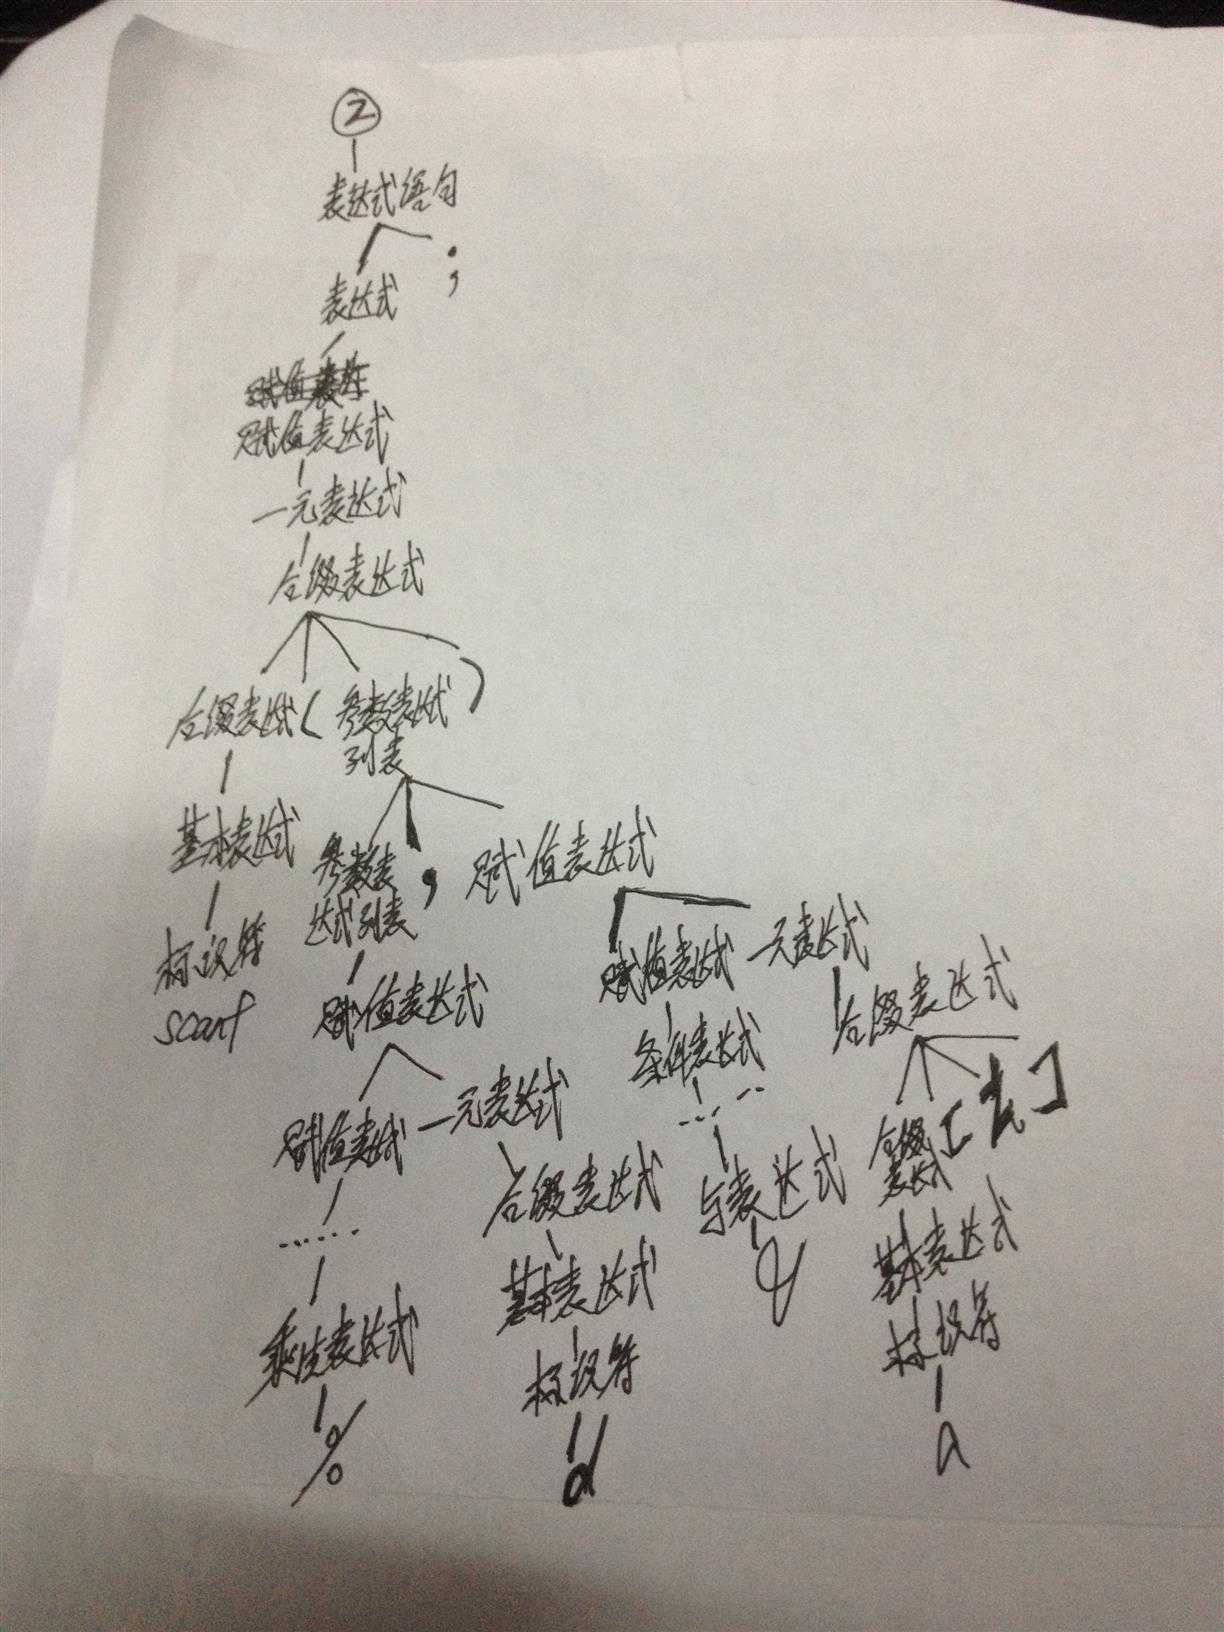 ②
表达式语句
表达式 ;
赋值表达式
一元表达式
后缀表达式
后缀表达式 ( 参数表达式列表 )
基本表达式 参数表达式列表 , 赋值表达式
标识符 赋值表达式 赋值表达式 一元表达式
scanf 条件表达式 后缀表达式
赋值表达式 一元表达式 ……
后缀表达式 与表达式 后缀表达式 [ ]
…… 基本表达式 & 基本表达式
乘法表达式 标识符 标识符
% d a